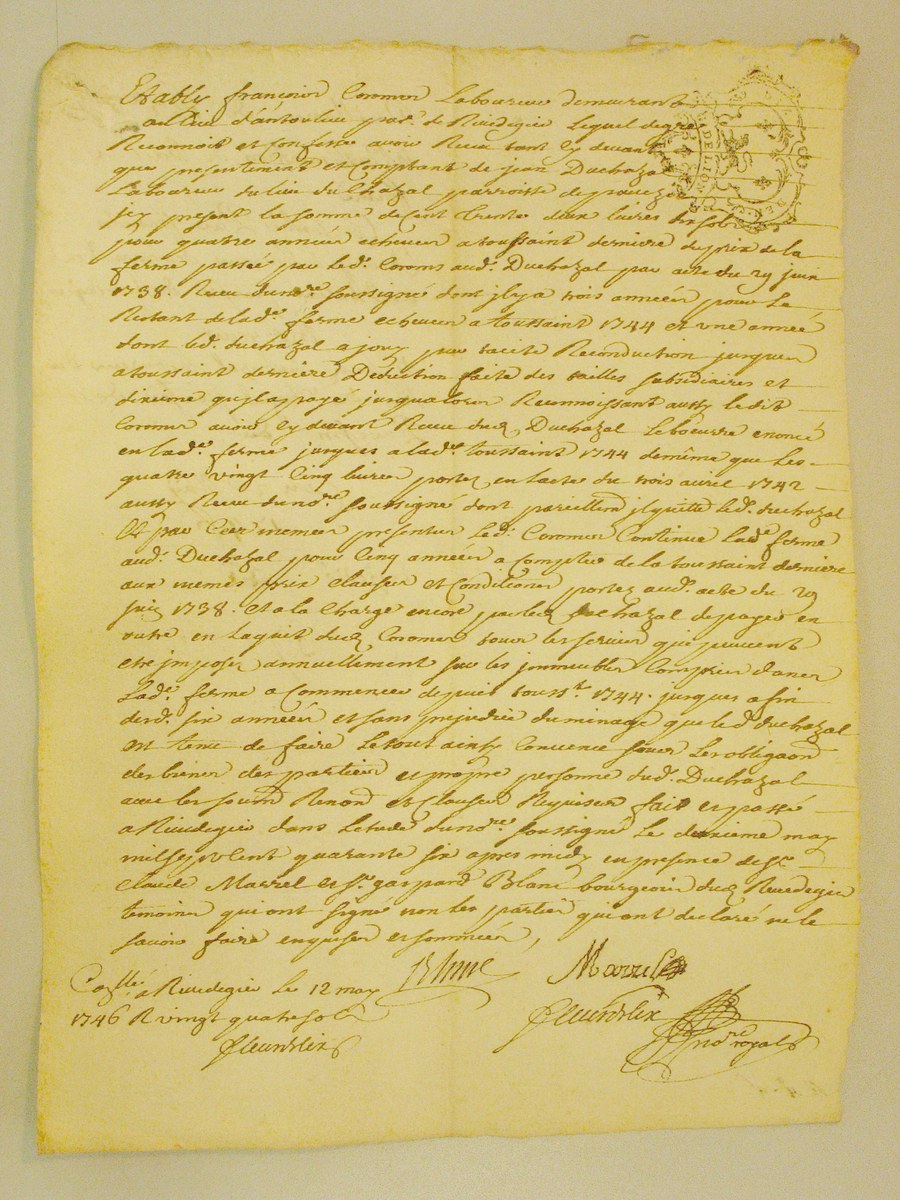 Etably françois Coromer Laboureur demeurant
au lieu d'antoulieu par. de Rivedegier Lequel degré
Reconnoit et confesse avoir Receu tant Cy devant
que présentement et Comptant de jean Duchazal
Laboureur du lieu du Chazal parroisse de
jcy present la somme de Cent trente deux livres sols
pour quatre années echeues a toussaint derniere du prix de la
ferme passée par led. Coromer aud. Duchazal par acte du 29 juin
1738. Receu du no.re soussigné dont il y a trois années pour Le
Restant de lad.e ferme echeues a toussaint 1744 et une année
dont led. duchazal a jouy par tacite Reconduction jusques
a toussaint derniere Deduction faite des tailles subsidiaires et
dixieme qu'jl a payé jusqu'alors Reconnoissant aussy ledit
Coromer avoir Cy devant Receu dud. Duchazal Le beurre enoncé
en lad.e ferme jusques a lad.e toussaint 1744 de même que Les
quatre vingt Cinq livres portés en l'acte du trois avril 1742
aussy Receu du no.re soussigné dont pareillem. jl quitte led. duchazal
Et par Ces memes presentes Led. Coromer Continue Lad.e ferme
aud. Duchazal pour Cinq années a Compter de la toussaint derniere
aux memes prix Clauses et Conditions portés aud. acte du 29
juin 1738. et a la Charge encore par led. duchazal de payer en
outre en Laquit dud. Coromer tous les servis qui peuvent
etre jmposés annuellement sur les jmmeubles Compris dans
Lad.e ferme a Commencer depuis touss.t 1744. jusques a fin
desd. six années et sans prejudice du minage que led. duchazal
est tenu de faire Le tout ainsy Convenu sous Les obligaons
des biens des parties et propre personne dud. Duchazal
avec les soum. Renon. et clauses Requises fait et passé
a Rivedegier dans L'etude du no.re soussigné Le deuxieme may
mil sept Cent quarante six apres midy en presence de s.r
Claude Marrel et s.r gaspard Blanc bourgeois dud. Rivedegier
temoins qui ont signé non les parties qui ont declaré ne le
savoir faire enquises et sommées,
Blanc Marrel
Con.llé a Rivedegier le 12 may
1746 R vingt quatre sols
fleurdelix
fleurdelix no.re royal